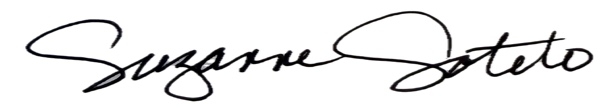 Suzanne Sotelo